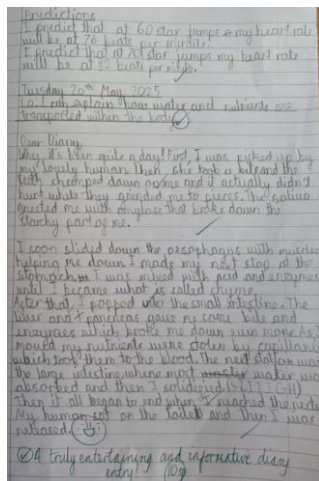 Predictions
I predict that at 60 star jumps my heart rate
will be at 76 beats per minute.
I predict that at 70 star jumps my heart rate
will be at 82 beats per minute.
Tuesday 20th May 2025
I can explain how water and nutrients are
transported within the body
Dear Diary,
Why, it's been quite a day! First, I was picked up by
my lovely human then, she took a bite and the
teeth chomped down on me and it actually didn't
hurt while they grinded me to pieces. The saliva
me with amylase that broke down the
starchy part of me.
I soon slided down the oesophagus with muscles
helping me down. I made my next stop at the
stomach. I was mixed with acid and enzymes
until I became what is called chyme.
After that, I popped into the small intestine. The
liver and pancreas gave me some bile and
enzymes which broke me down even more. As I
moved my nutrients were stolen by capillaries
which took them to the blood. The next station was
the large intestine, where most water was
absorbed and then I solidified
Then it all began to end when I reached the
My human sat on the toilet and then I was
released.
A truly entertaining and informative diary
entry!